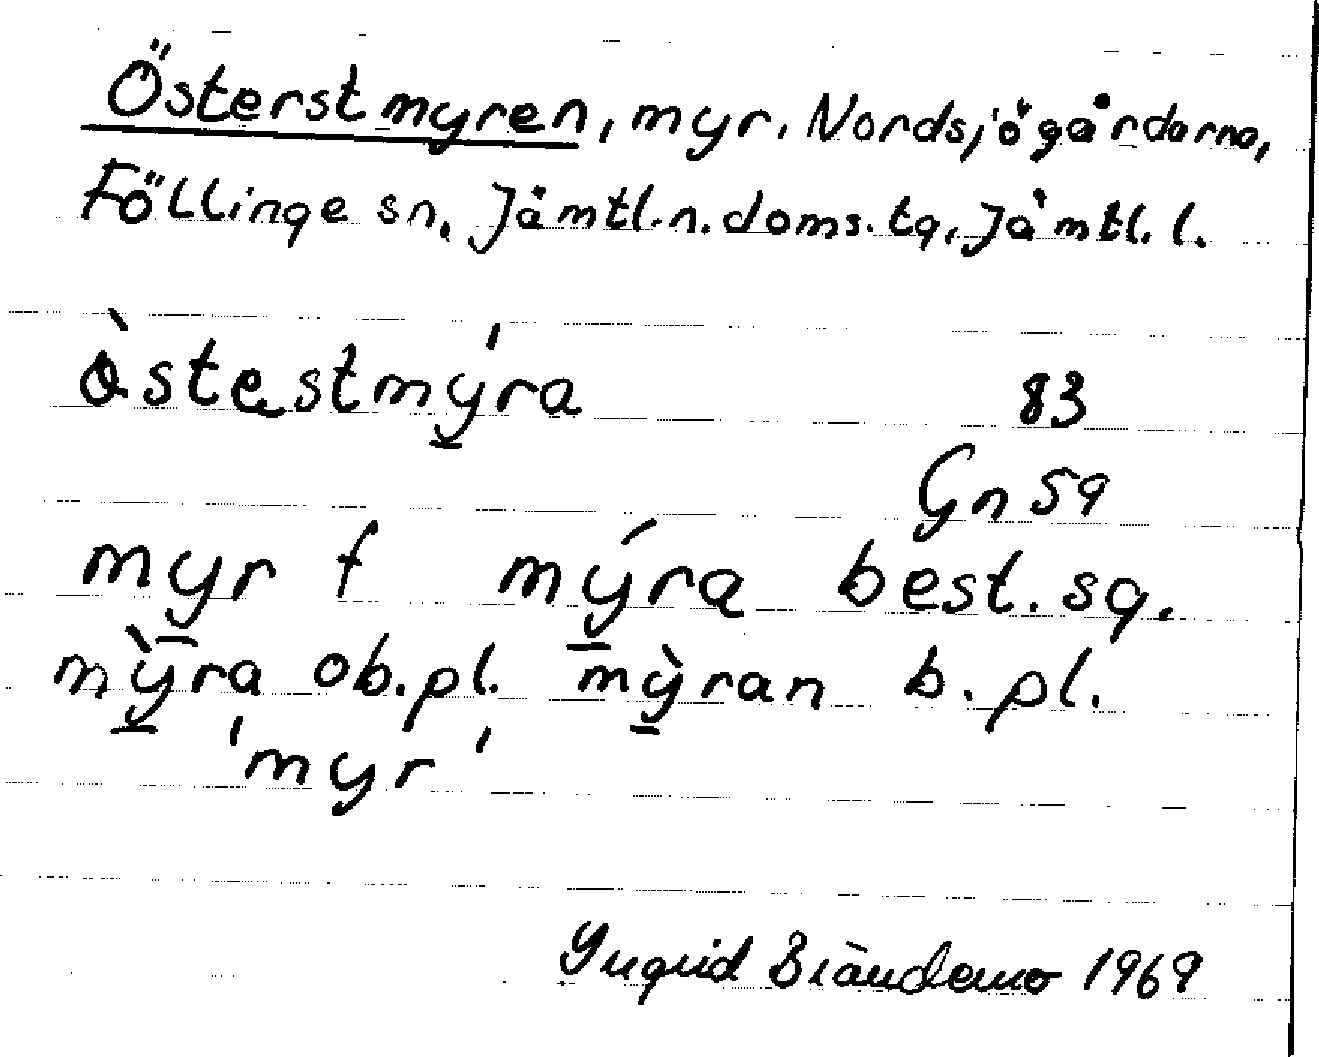 Österstmyren, myr. Nordsjögårdarna,
Föllinge sn, Jämtl.n.doms.tg, Jämtl.l.
òstestmýra 83
Gn 59
myr f mýra best. sg.
mỳra ob.pl. mỳran b. pl.
'myr'
Yngrid Brändemo 1969